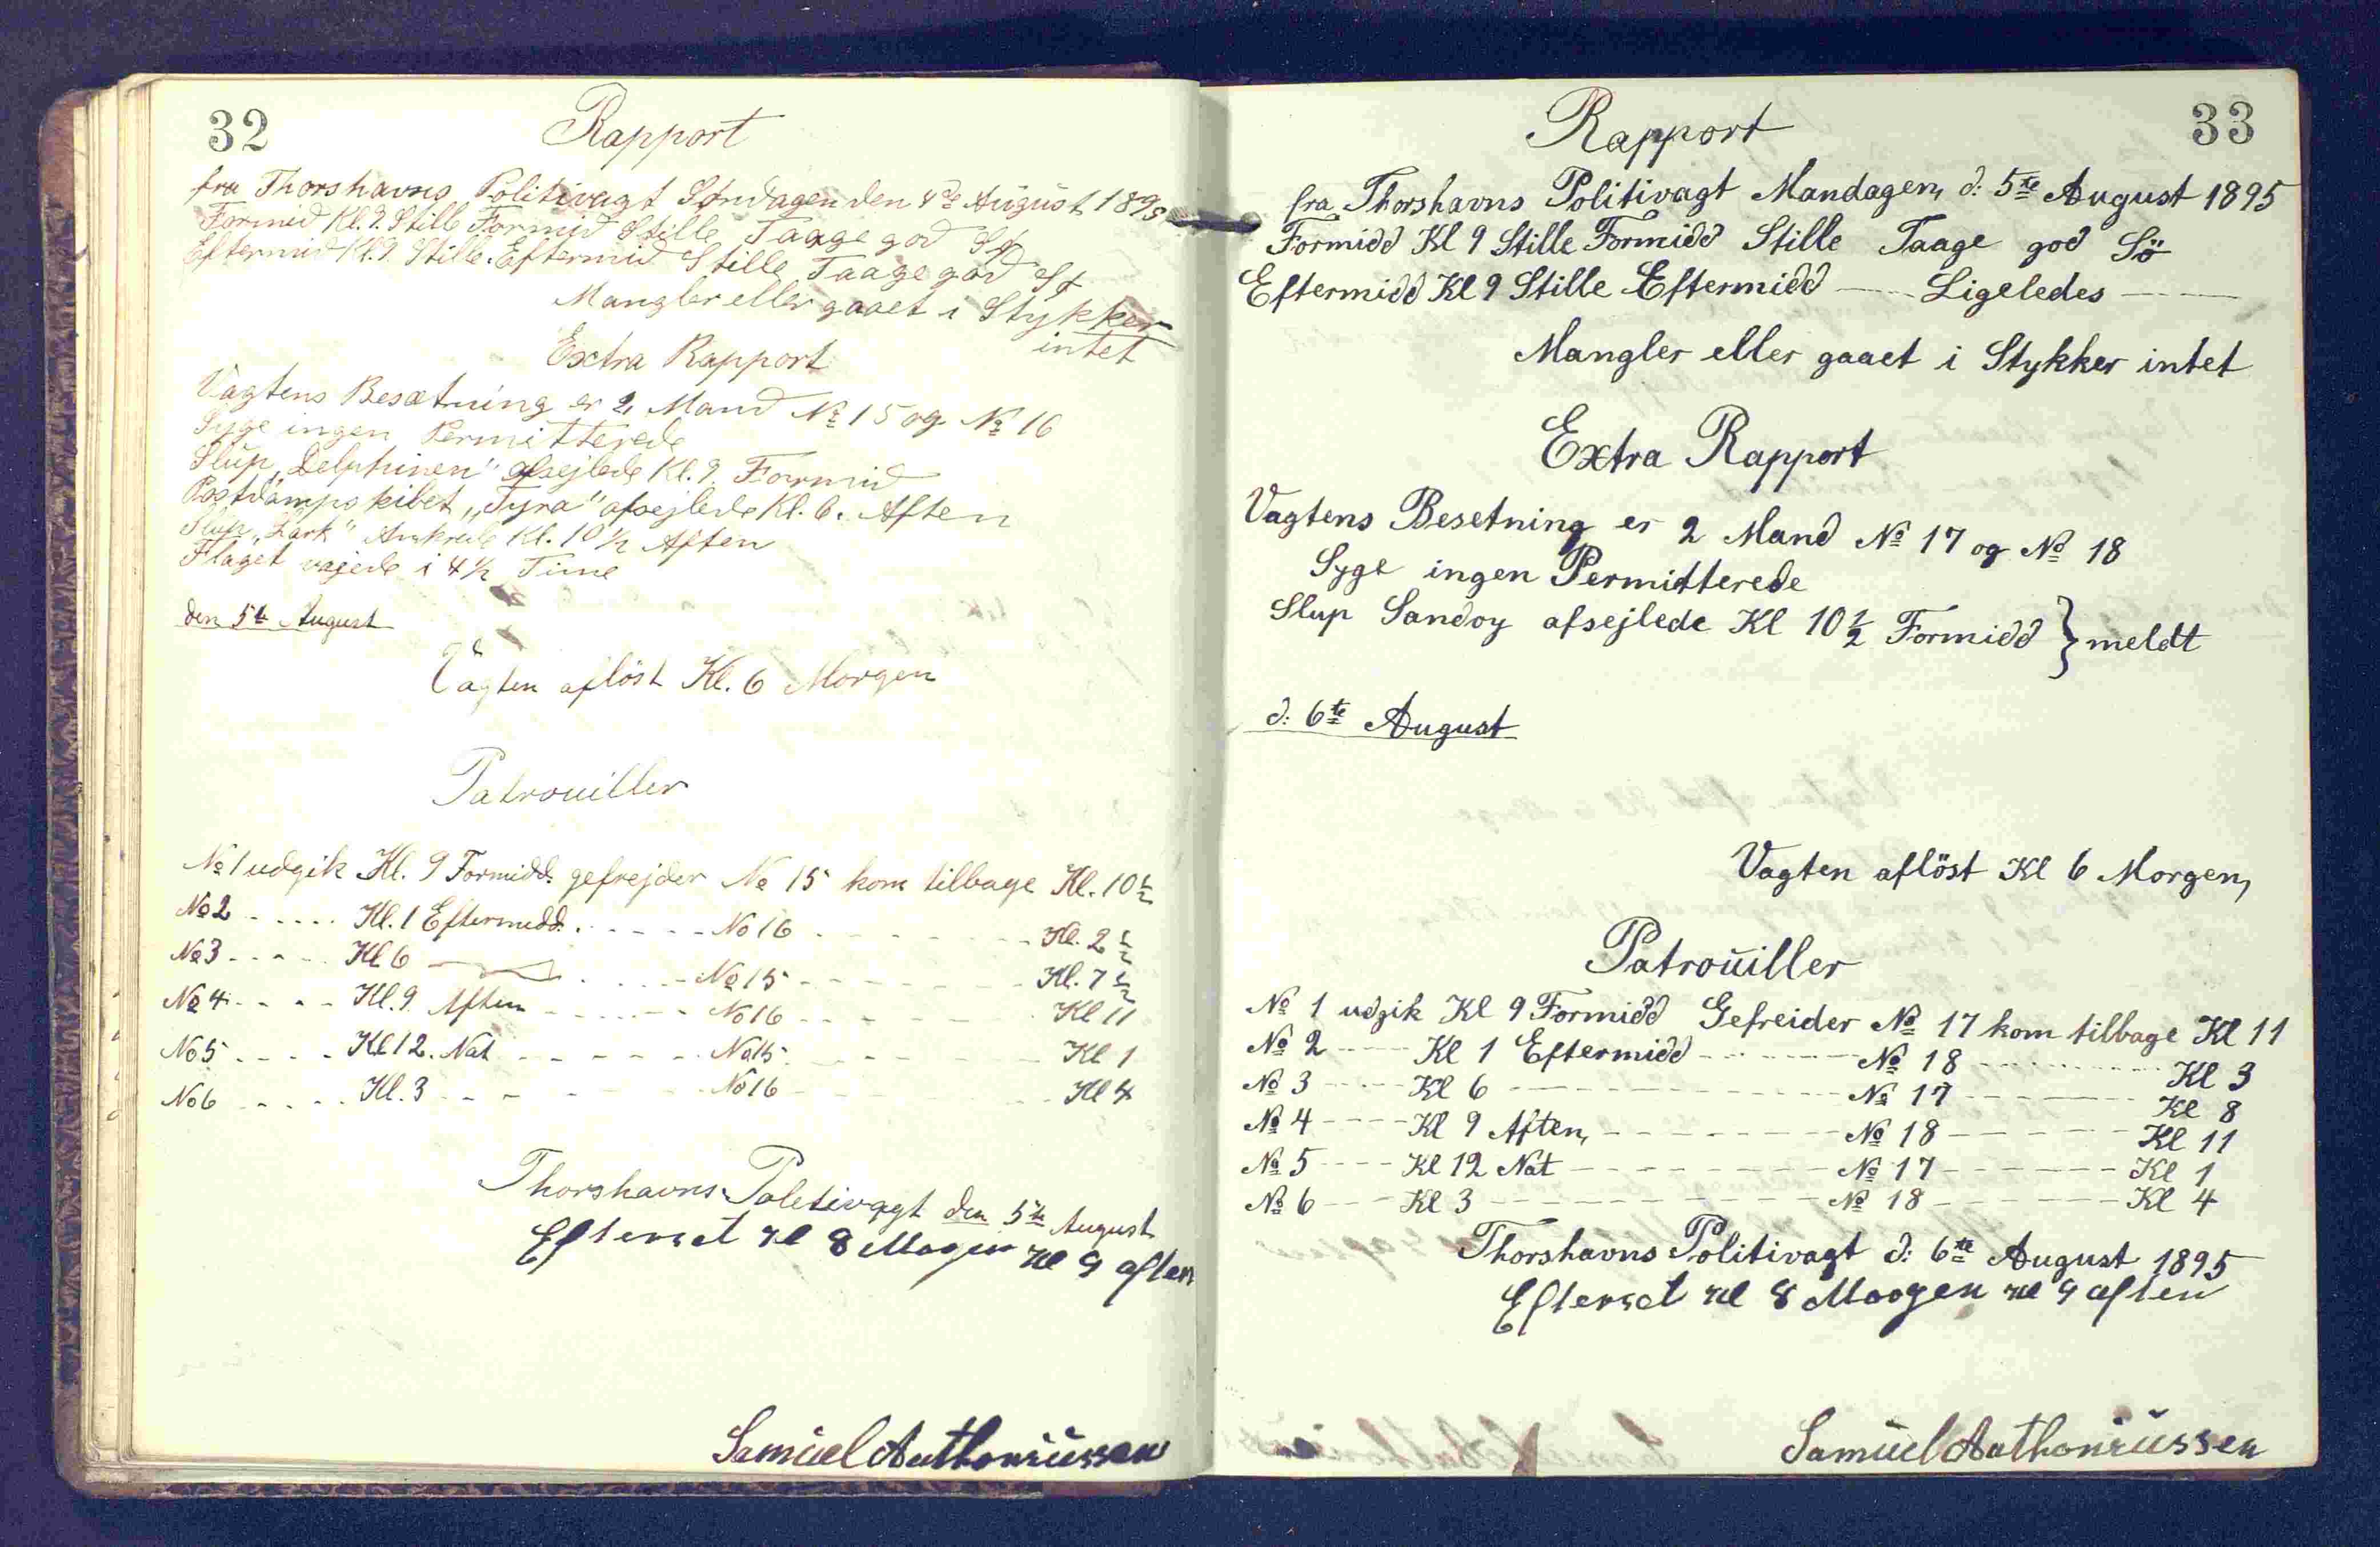 32
Rapport
fra Thorshavns Politivagt Søndagen den 4de August 1895
Formid Kl. 9. Stille Formid Stille Taage god Sø
Eftermid Kl. 9. Stille Eftermid Stille Taage god Sø
Mangler eller gaaet i Stykker
intet
Extra Rapport
Vagtens Besætning er 2 Mand No 15 og No 16
Syge ingen Permitterede
Slup „Delphinen" afsejlede Kl. 9. Formid
Postdampskibet „Tyra" afsejlede Kl. 6. Aften
Slup „Lark" Ankrede Kl. 10 1/2 Aften
Flaget vajede i 4 1/2 Time
den 5te August
Vagten aflöst Kl. 6 Morgen
Patrouiller
No 1 udgik Kl. 9 Formidd. gefrejder No 15 kom tilbage Kl. 10 1/2
No 2 - - - - - Kl. 1 Eftermidd. - - - - - No 16 - - - - - - - - Kl. 2 1/2
No 3 - - - - - Kl 6 — - - - - No 15 - - - - - - - - Kl. 7 1/2
No 4 - - - - Kl. 9. Aften - - - - - - No 16 - - - - - - - Kl 11
No 5 - - - - Kl 12. Nat - - - - - - No 15 - - - - - - - Kl 1
No 6 - - - - Kl. 3 - - - - - - No 16 - - - - - - - Kl 4
Thorshavns Poletivagt den 5te August
Efterset Kl 8 Mogen Kl 9 aften
Samúel Anthoniússen
33
Rapport
fra Thorshavns Politivagt Mandagen, d: 5te August 1895
Formidd Kl 9 Stille Formidd Stille Taage god Sö
Eftermidd Kl 9 Stille Eftermidd — Ligeledes —
Mangler eller gaaet i Stykker intet
Extra Rapport
Vagtens Besetning er 2 Mand No 17 og No 18
Syge ingen Permitterede
Slup Sandoy afsejlede Kl 10 1/2 Formidd } meldt
d: 6te August
Vagten aflöst Kl 6 Morgen,
Patroüiller
No 1 udgik Kl 9 Formidd Gefreider No 17 kom tilbage Kl 11
No 2 - - - - Kl 1 Eftermidd - - - - - - No 18 - - - - - - - Kl 3
No 3 - - - - Kl 6 - - - - - - - - - - No 17 - - - - - - - Kl 8
No 4 - - - - Kl 9 Aften, - - - - - - - No 18 - - - - - - - Kl 11
No 5 - - - - Kl 12 Nat - - - - - - - - No 17 - - - - - - - Kl 1
No 6 - - - Kl 3 - - - - - - - - - - No 18 - - - - - - - Kl 4
Thorshavns Politivagt d: 6te August 1895
Efterset Kl 8 Morgen Kl 9 aften
Samúel Anthoniússen